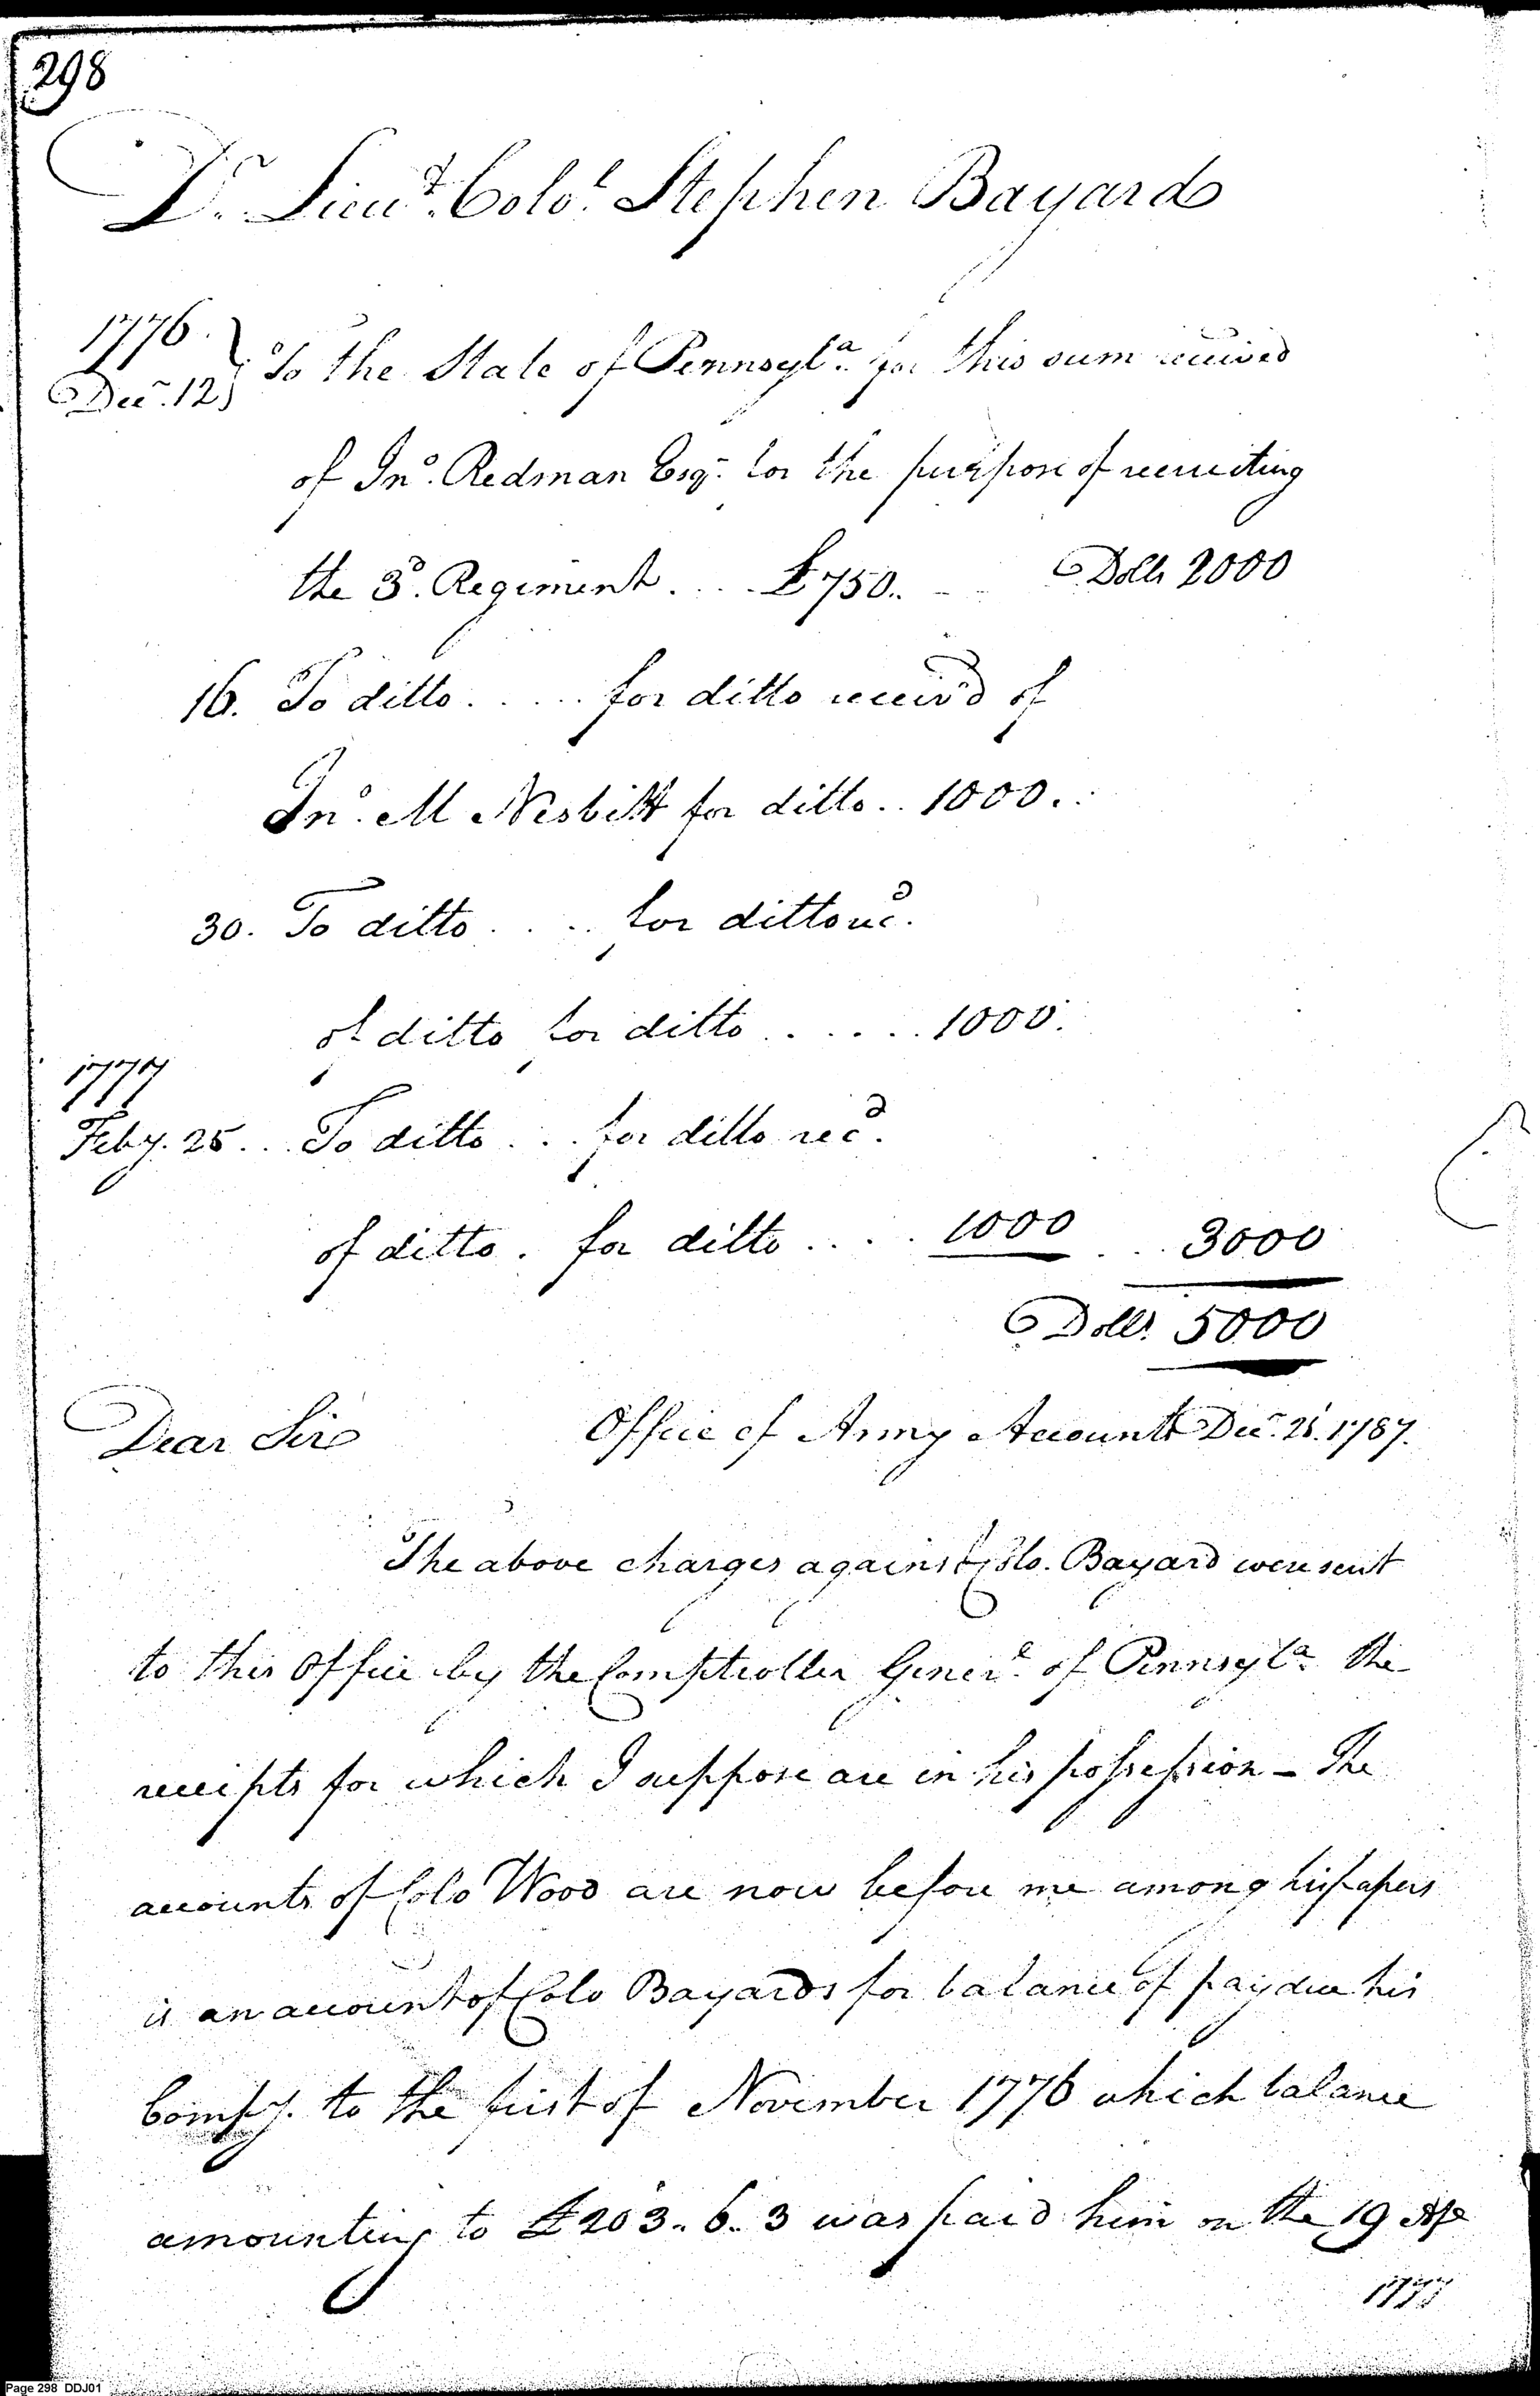 298
Dr. Lieut. Colol. Stephen Bayard
1776.
Decr. 12 } To the State of Pennsyla. for this sum received
of Jno. Redman Esqr. for the purpose of recruiting
the 3d. Regiment .... £750.. - - Dolls 2000
16. To ditto ..... for ditto receiv'd of
Jno. M Nesbitt for ditto .. 1000..
30. To ditto .... for ditto recd.
of ditto for ditto ..... 1000.
1777
Feby. 25... To ditto ... for ditto recd.
of ditto . for ditto .... 1000 ... 3000
Dolls. 5000
Dear Sir Office of Army Accounts Decr. 1787.
The above charges against Colo. Bayard were sent
to this Office by the Comptroller Generl. of Pennsyla. the
receipts for which I suppose are in his possession - The
accounts of Colo Wood are now before me among his papers
is an account of Colo Bayards for balance of pay due his
Compy. to the first of November 1776 which balance
amounting to £203.. 6.. 3 was paid him on the 19
1777
Page 298 DDJ01